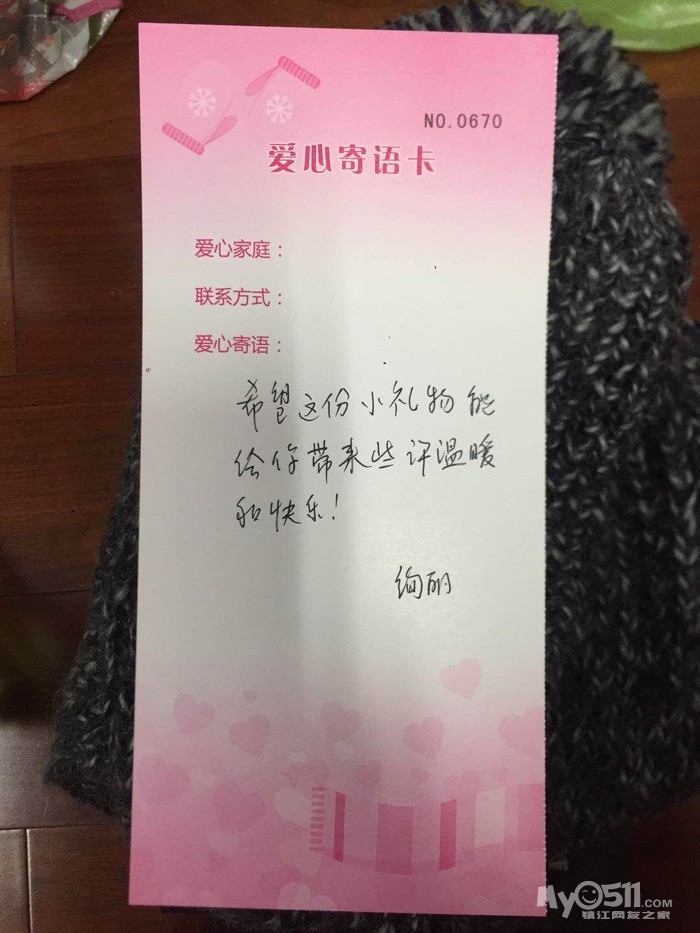 NO.0670
爱心寄语卡
爱心家庭：
联系方式：
爱心寄语：
希望这份小礼物能
给你带来些许温暖
和快乐！
绚丽
My0511.COM
镇江网友之家